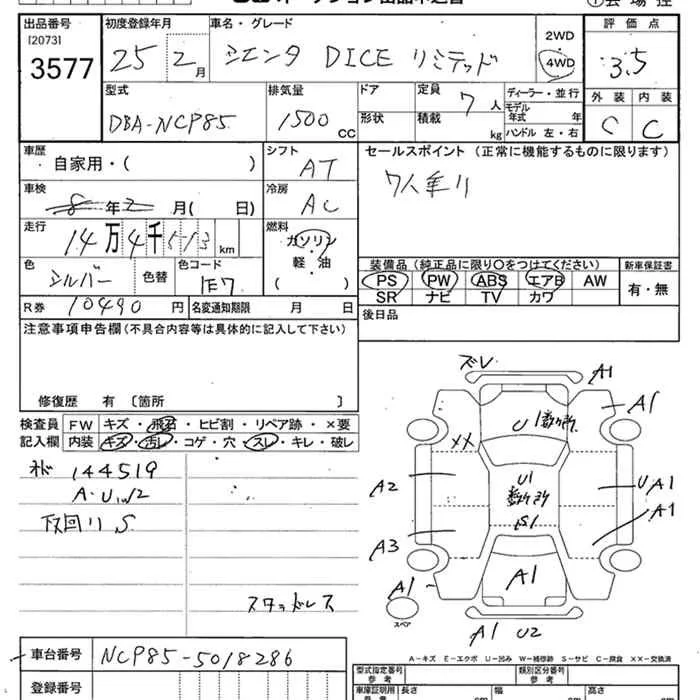 出品番号 初度登録年月 車名・グレード 2WD 評価点
[2073]
3577 25 2月 シエンタ DICE リミテッド 4WD 3.5
型式 排気量 ドア 定員 7人 ディーラー・並行 外装 内装
モデル年式 年
DBA-NCP85 1500cc 形状 積載 kg ハンドル 左・右 C C
車歴 シフト セールスポイント (正常に機能するものに限ります)
自家用・( ) AT 7人乗り
車検 冷房
8年2月( 日) AC
走行 燃料
14万4千513km ガソリン・軽・油 ( )
色 色替 色コード 装備品 (純正品に限り○をつけてください) 新車保証書
シルバー 1E7 PS PW ABS エアB AW 有・無
SR ナビ TV カワ
R券 10490円 名変通知期限 月 日 後日品
注意事項申告欄 (不具合内容等は具体的に記入して下さい)
修復歴 有 〔箇所 〕
検査員 FW キズ・飛石・ヒビ割・リペア跡・×要
記入欄 内装 キズ・汚レ・コゲ・穴・スレ・キレ・破レ
144519
A・UW2
下回リS
スタッドレス
ズレ A1
A1
U 数ヶ所
XX
A2 U1 数ヶ所 UA1
S1 A1
A3
A1 A1
スペア
A1 U2
A-キズ E-エクボ U-凹み W-補修跡 S-サビ C-腐食 XX-交換済
車台番号 NCP85-5018286
型式指定番号 参考 類別区分番号 参考
登録番号
車庫証明用 長さ cm 幅 cm 高さ cm